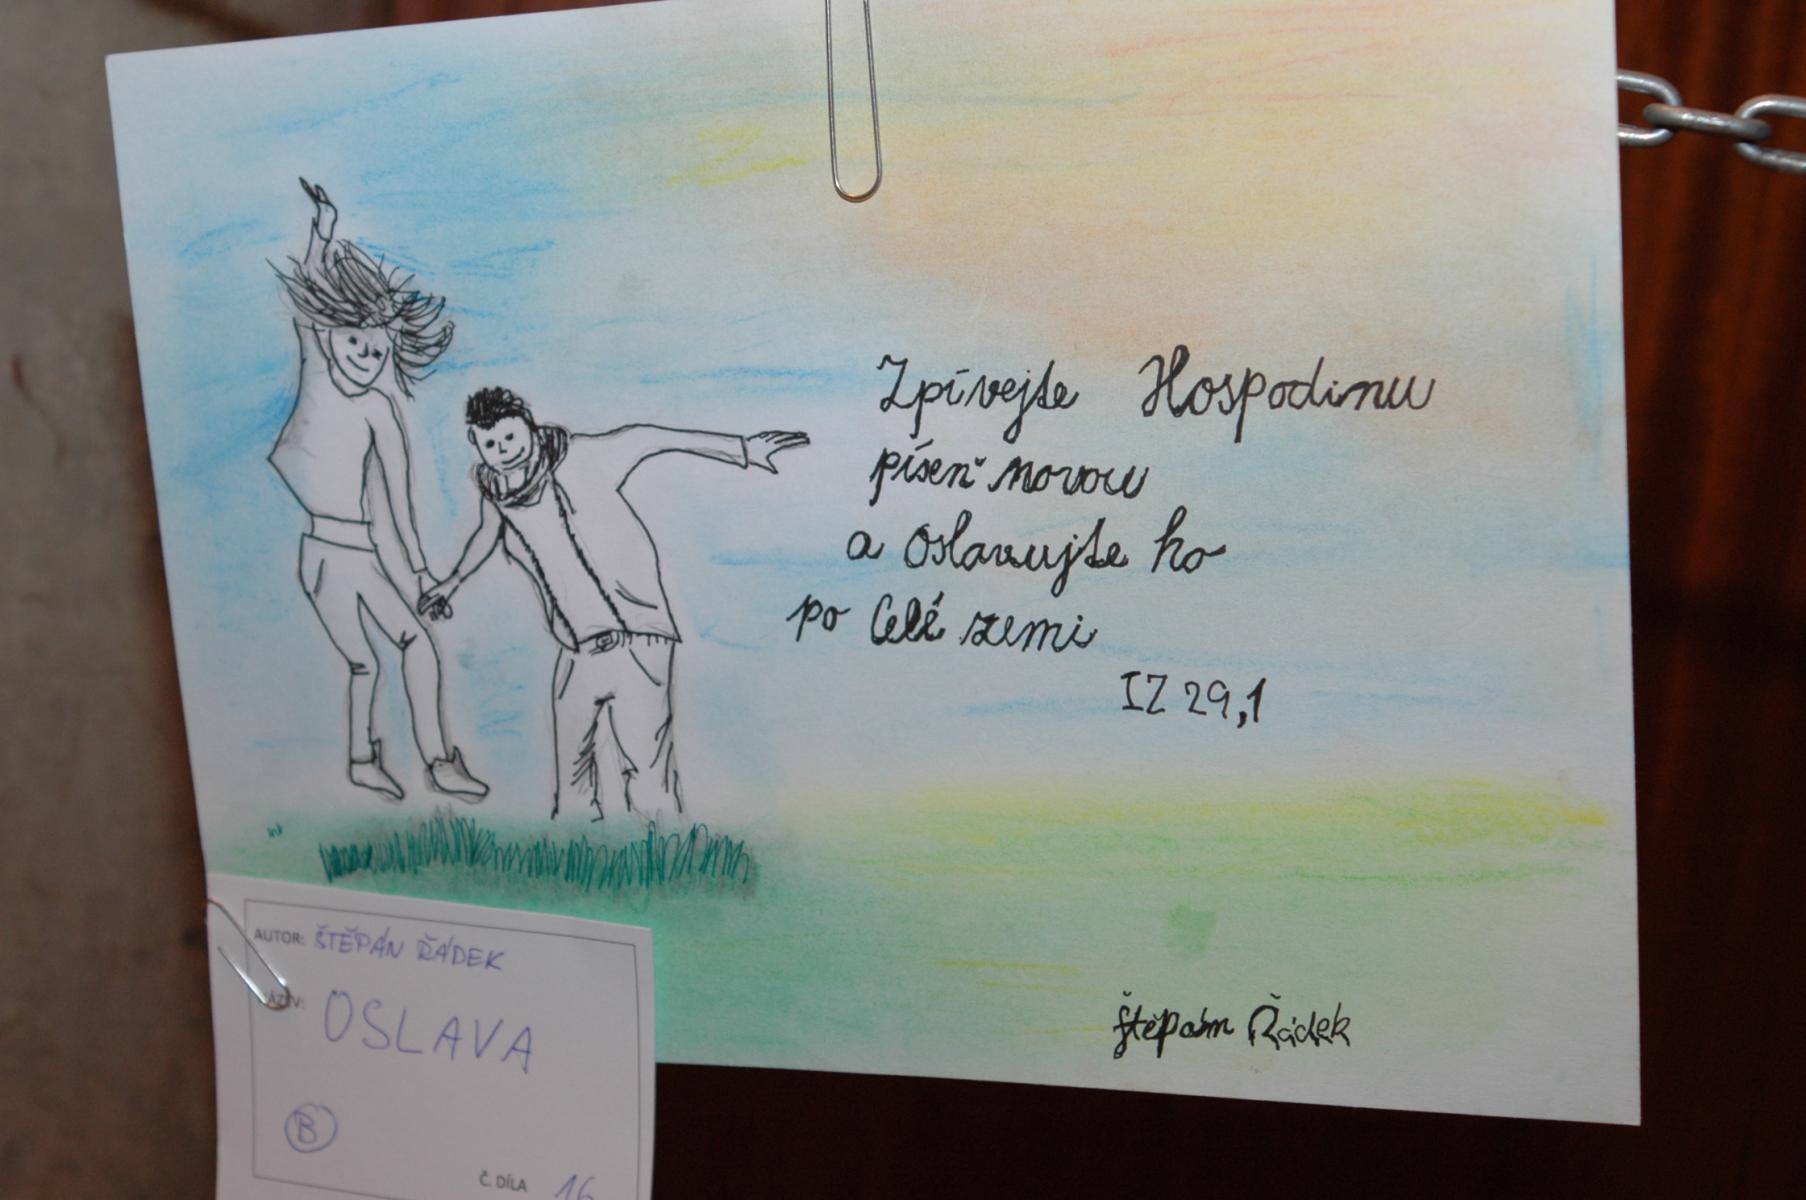 Zpívejte Hospodinu
píseň novou
a Oslavujte ho
po Celé zemi
IZ 29,1
Štěpán Řádek
AUTOR: ŠTĚPÁN ŘÁDEK
OSLAVA
B
Č. DÍLA 16